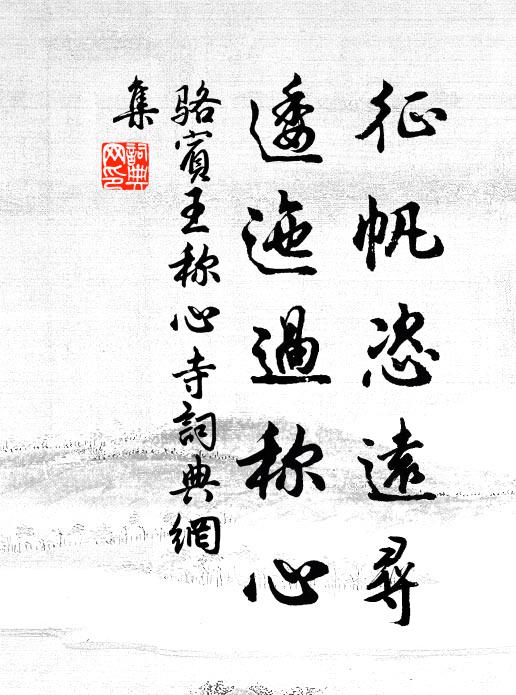 征帆恣遠尋
逶迤過称心
骆賓王称心寺詞典網
集
詞典
网印